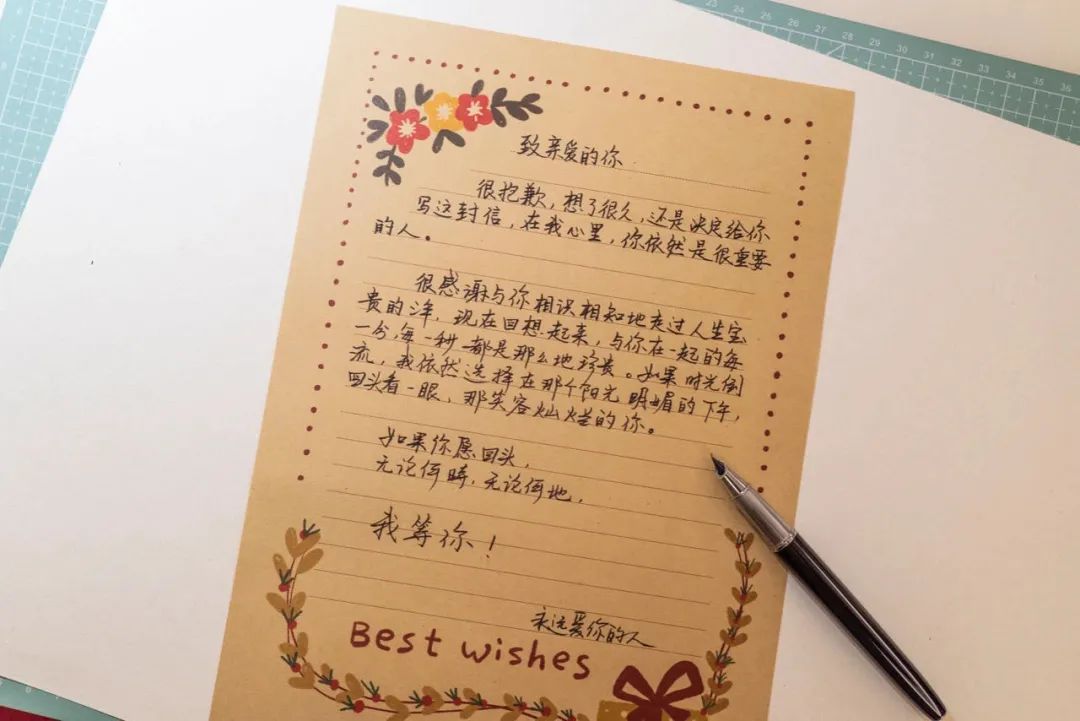 23 24 25 26 27 28 29 30 31 32 33 34 35 36
致亲爱的你
很抱歉，想了很久，还是决定给你
写这封信，在我心里，你依然是很重要
的人。
很感谢与你相识相知地走过人生宝
贵的年，现在回想起来，与你在一起的每
一分，每一秒都是那么地珍贵。如果时光倒
流，我依然选择在那个阳光明媚的下午，
回头看一眼，那笑容灿烂的你。
如果你愿回头，
无论何时，无论何地，
我等你！
永远爱你的人
Best wishes